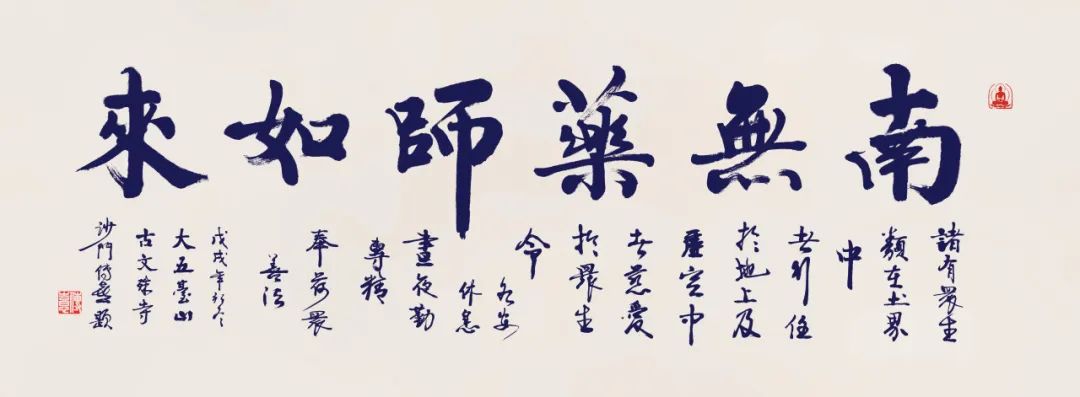 南無藥師如來
諸有眾生
類在土界
中
者行住
於地上及
虛空中
者慈愛
於眾生
令
各安
休息
晝夜勤
專精
奉行眾
善法
戊戌年初冬
大五臺山
古文殊寺
沙門題